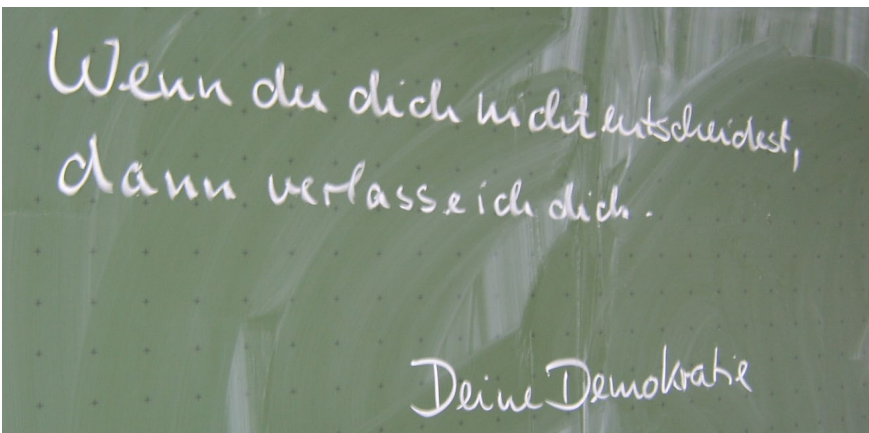 Wenn du dich nicht entscheidest,
dann verlasse ich dich.
Deine Demokratie